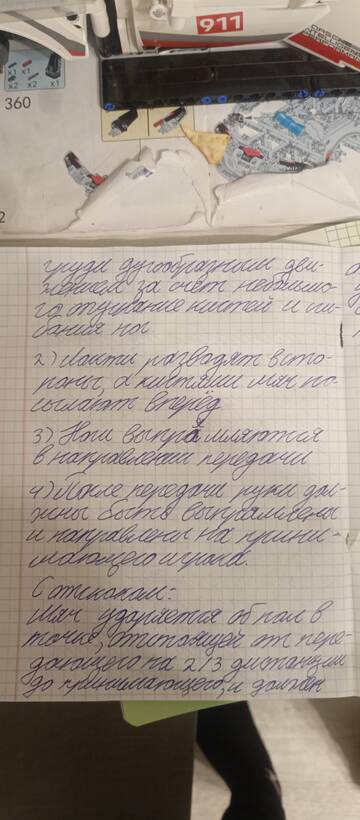 911
x1 x1
x2 x2 x1
360
2
груди дугообразным дви-
жением за счёт небольшо-
го опускание кистей и сги-
бания ног
2) Локти разводят в сто-
роны, а кистями мяч по-
сылают вперёд
3) Ноги выпрямляются
в направлении передачи
4) После передачи руки дол-
жны быть выпрямлены
и направлены на прини-
мающего игрока.
С отскоком:
Мяч ударяется об пол в
точке, отстоящей от пере-
дающего на 2/3 дистанции
до принимающего, и должен